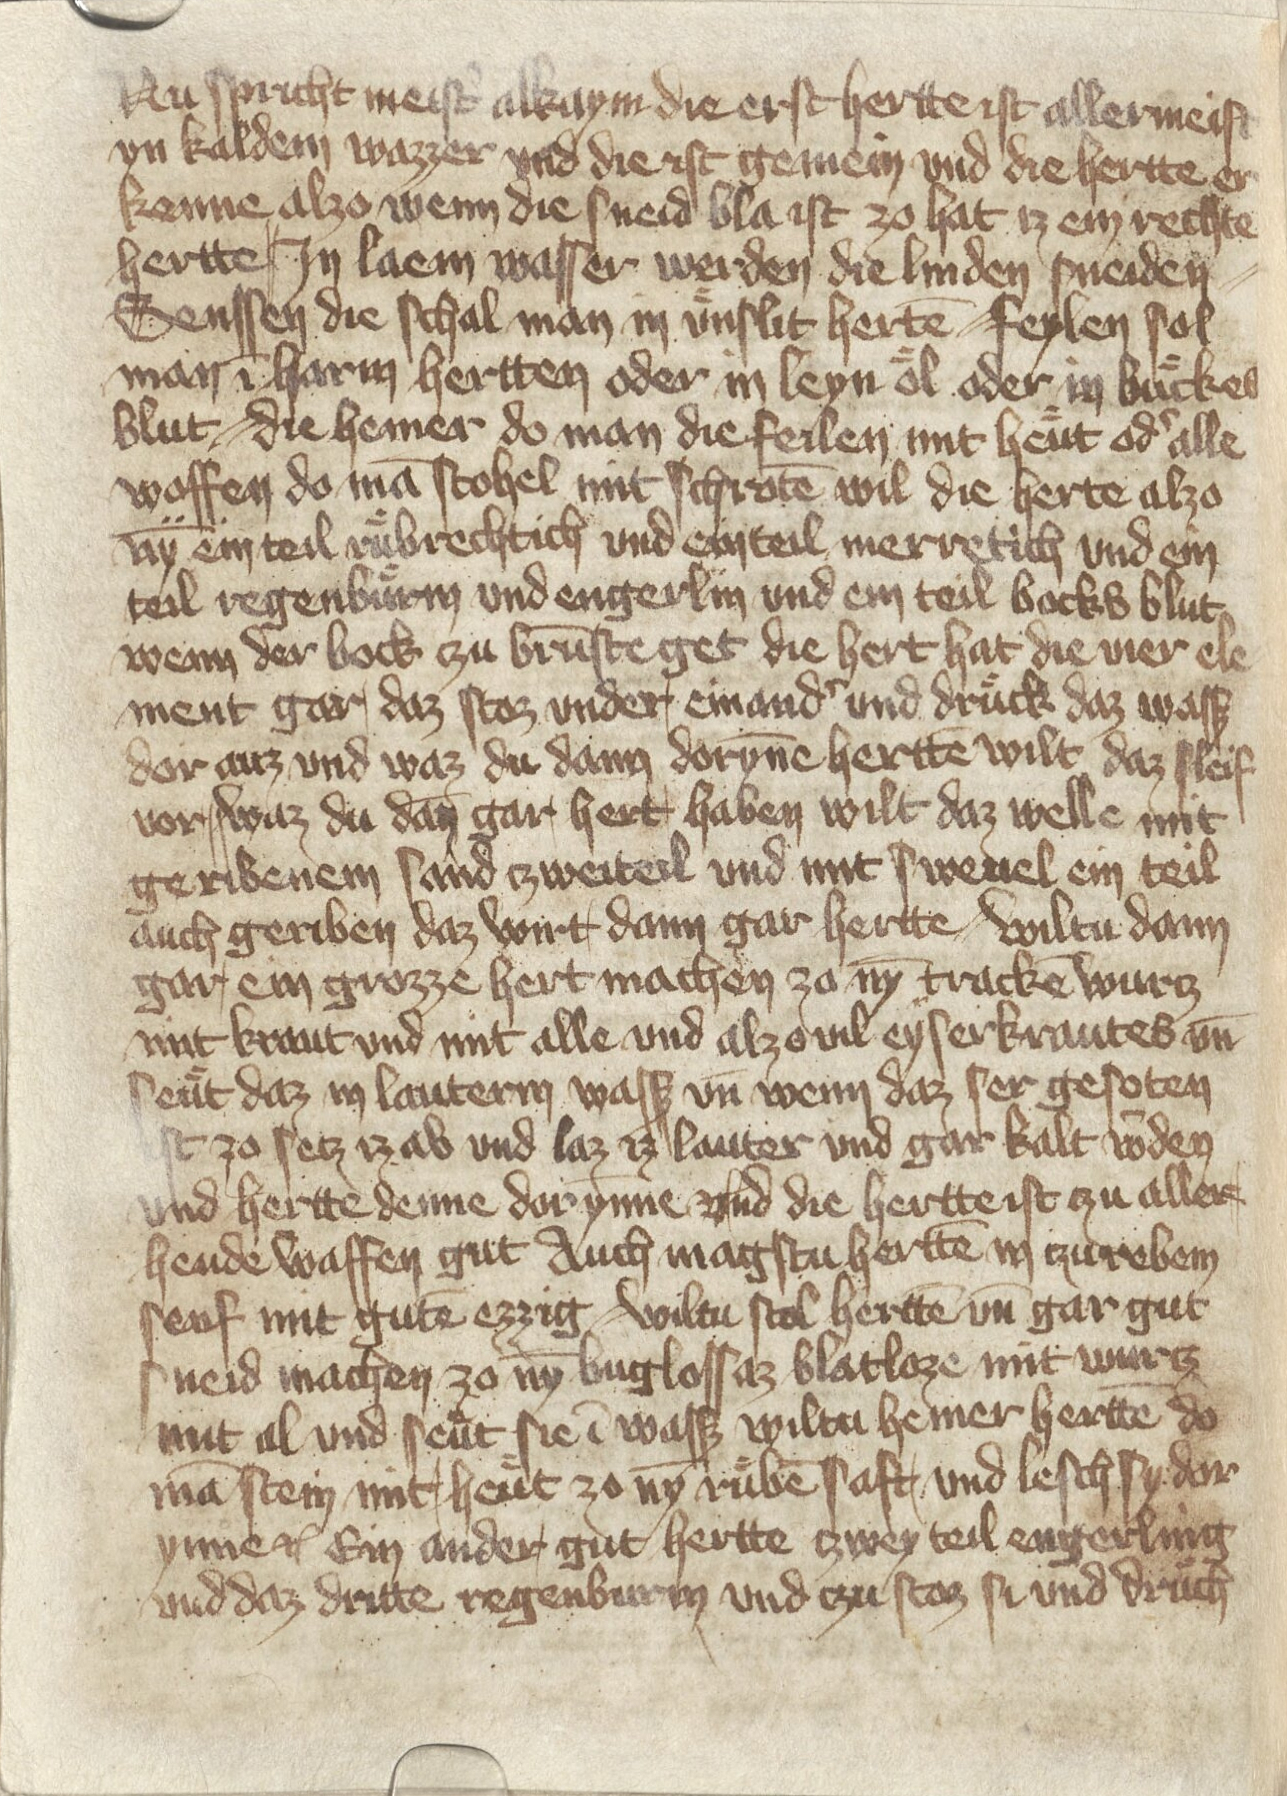 Nu spricht meist' alkaym die erst hertte ist aller meist
yn kaldem wazzer vnd die ist gemein vnd die hertte er
kenne alzo wenn die sneid bla ist zo hat iz ein rechte
hertte / In laem wasser werden die linden sneiden /
Senssen die schal man in vͤnslit hertē / feylen sol
man ī harm hertten oder in leyn oͤl oder in buͤckes
blut / die hemer do man die feilen mit heuͤt od' alle
waffen do mā stohel mit schrotē wil die herte alzo
nȳ ein teil ruͤbrechtich vnd ein teil merretich vnd ein
teil regenbuͤrm vnd engerlin vnd ein teil bocks blut
wenn der bock czu brūste get die hert hat die vier ele
ment gar / daz stoz vnder einand' vnd druͤck daz wassz
dor auz vnd waz du dann dorynne herttē wilt daz sleif
vor / waz du dān gar hert haben wilt daz welle mit
geribenem sand czweiteil vnd mit sweuel ein teil
auch geriben daz wirt dann gar hertte / wiltu dann
gar ein grozze hert machen zo nȳ trackē wurcz
mit kraut vnd mit alle vnd alzo vil eyserkrautes vn̄
seuͤt daz in lauterm wassz vn̄ wenn daz ser gesoten
ist zo setz iz ab vnd laz iz lauter vnd gar kalt w̄den
vnd hertte denne dor ynne vnd die hertte ist czu aller
hende waffen gut Auch magstu herttē in czurebem
senf mit gutē ezzig / wiltu stol herttē vn̄ gar gut
sneid machen zo nȳ buglossaz blatloze mit wurcz
mit al vnd seuͤt sie ī wassz wiltu hemer herttē do
mā stein mit heuͤt zo nȳ ruͤbē saft vnd lesch sy dor
ynne Ein ander gut hertte czwey teil engerling
vnd daz dritte regenburm vnd czu stoz si vnd druͤch